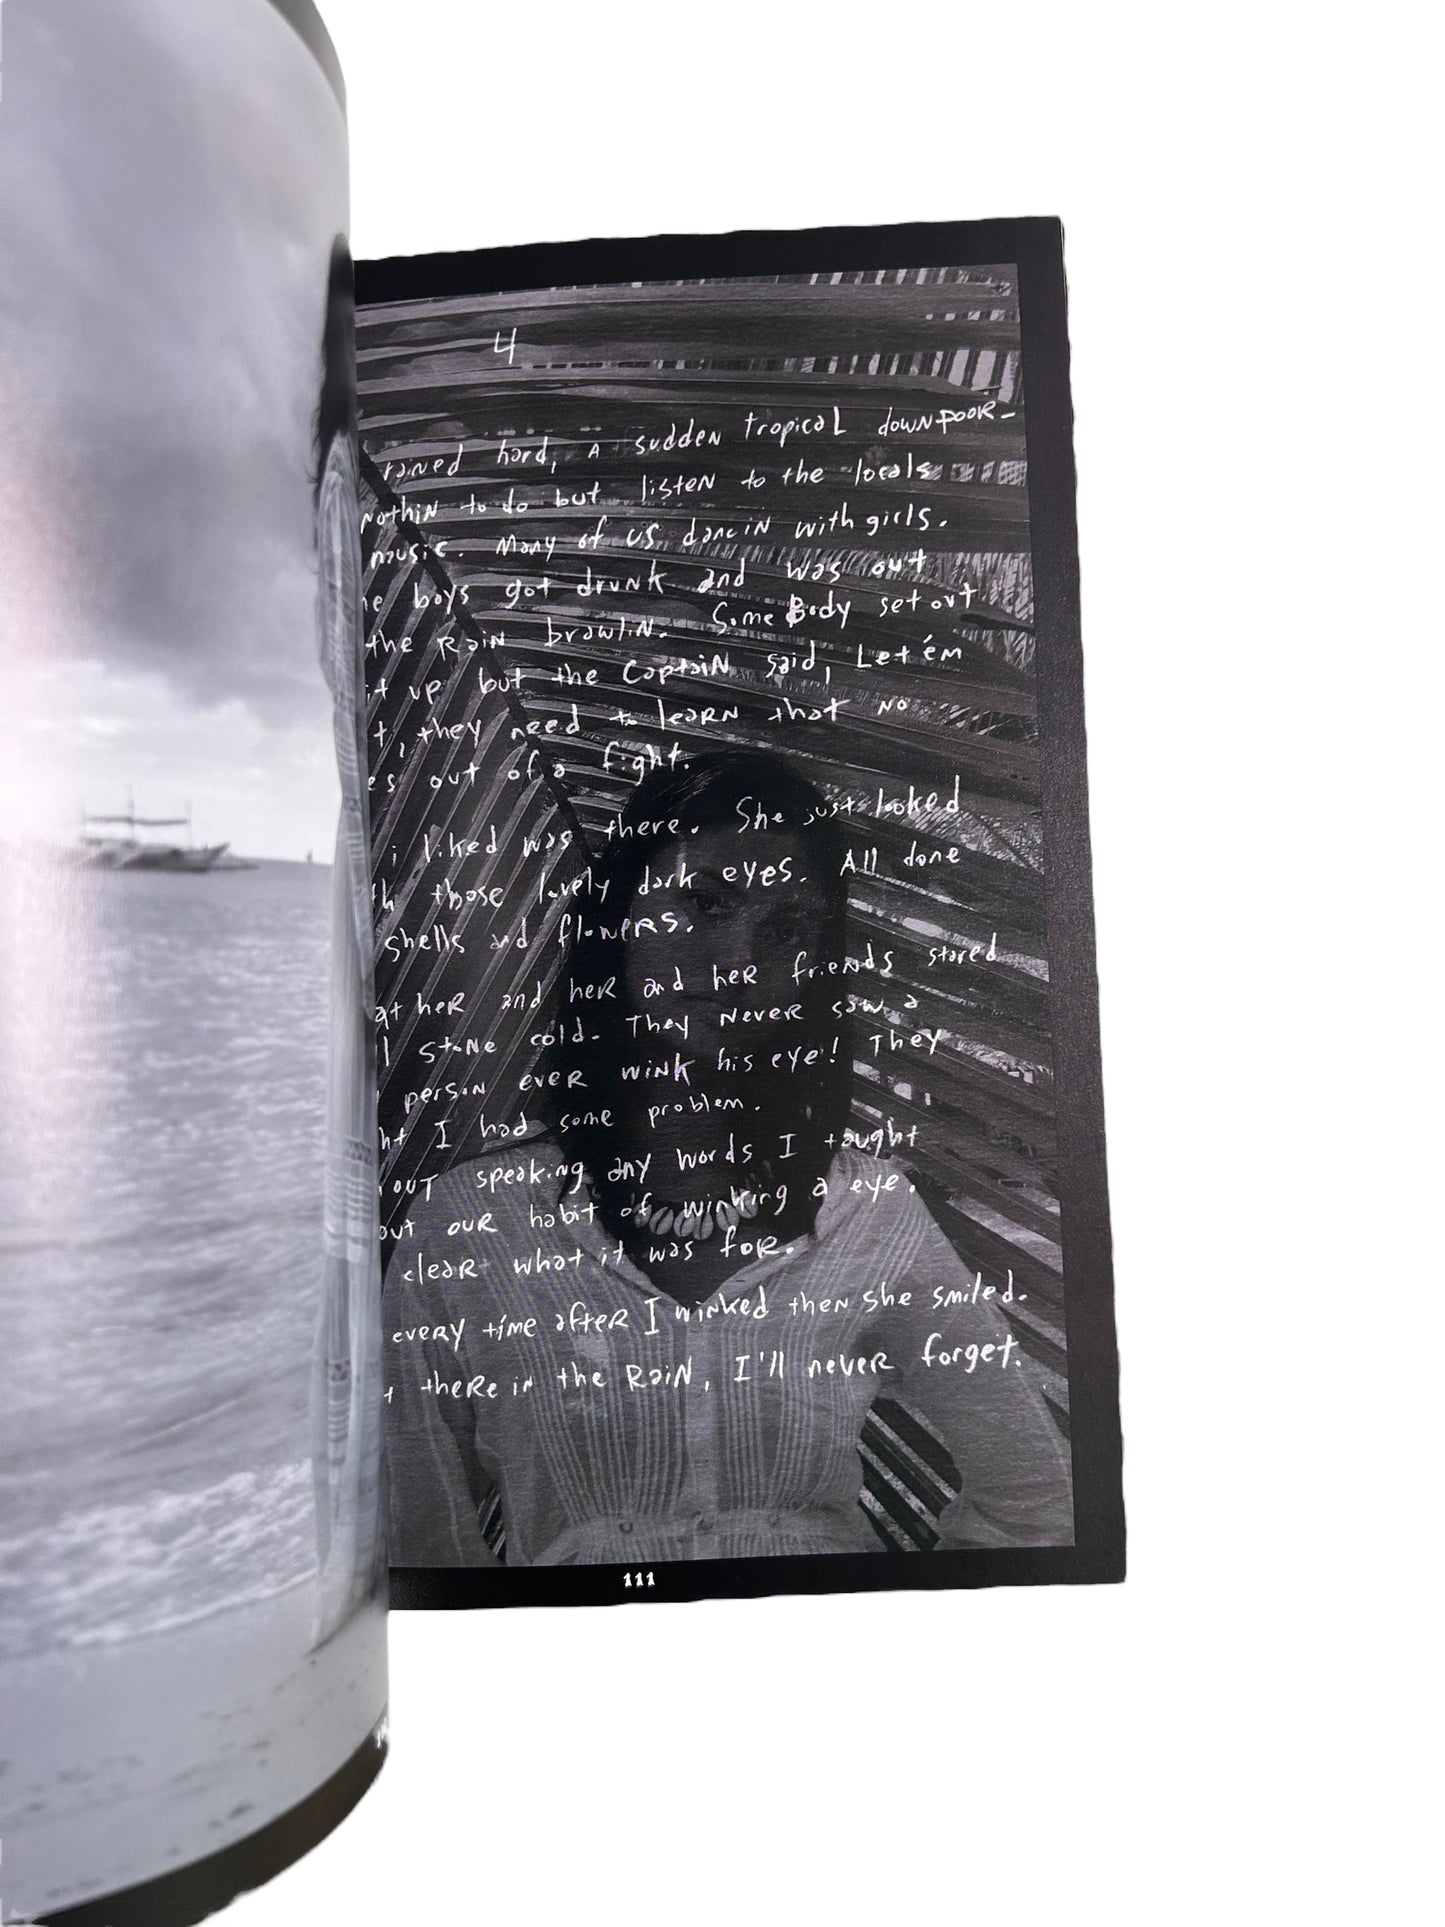 4
rained hard, A sudden tropical downpoor-
nothin to do but listen to the locals
music. Many of us dancin with girls.
boys got drunk and was out
the Rain brawlin. SomeBody set out
it up but the Captain said, Let ém
they need to learn that no
out of a fight.
i liked was there. She just looked
those lovely dark eyes. All done
shells and flowers.
at her and her and her friends stared
stone cold. They never saw a
person ever wink his eye! They
I had some problem.
speaking any words I taught
our habit of winking a eye.
clear what it was for.
every time after I winked then she smiled.
there in the Rain, I'll never forget.
111